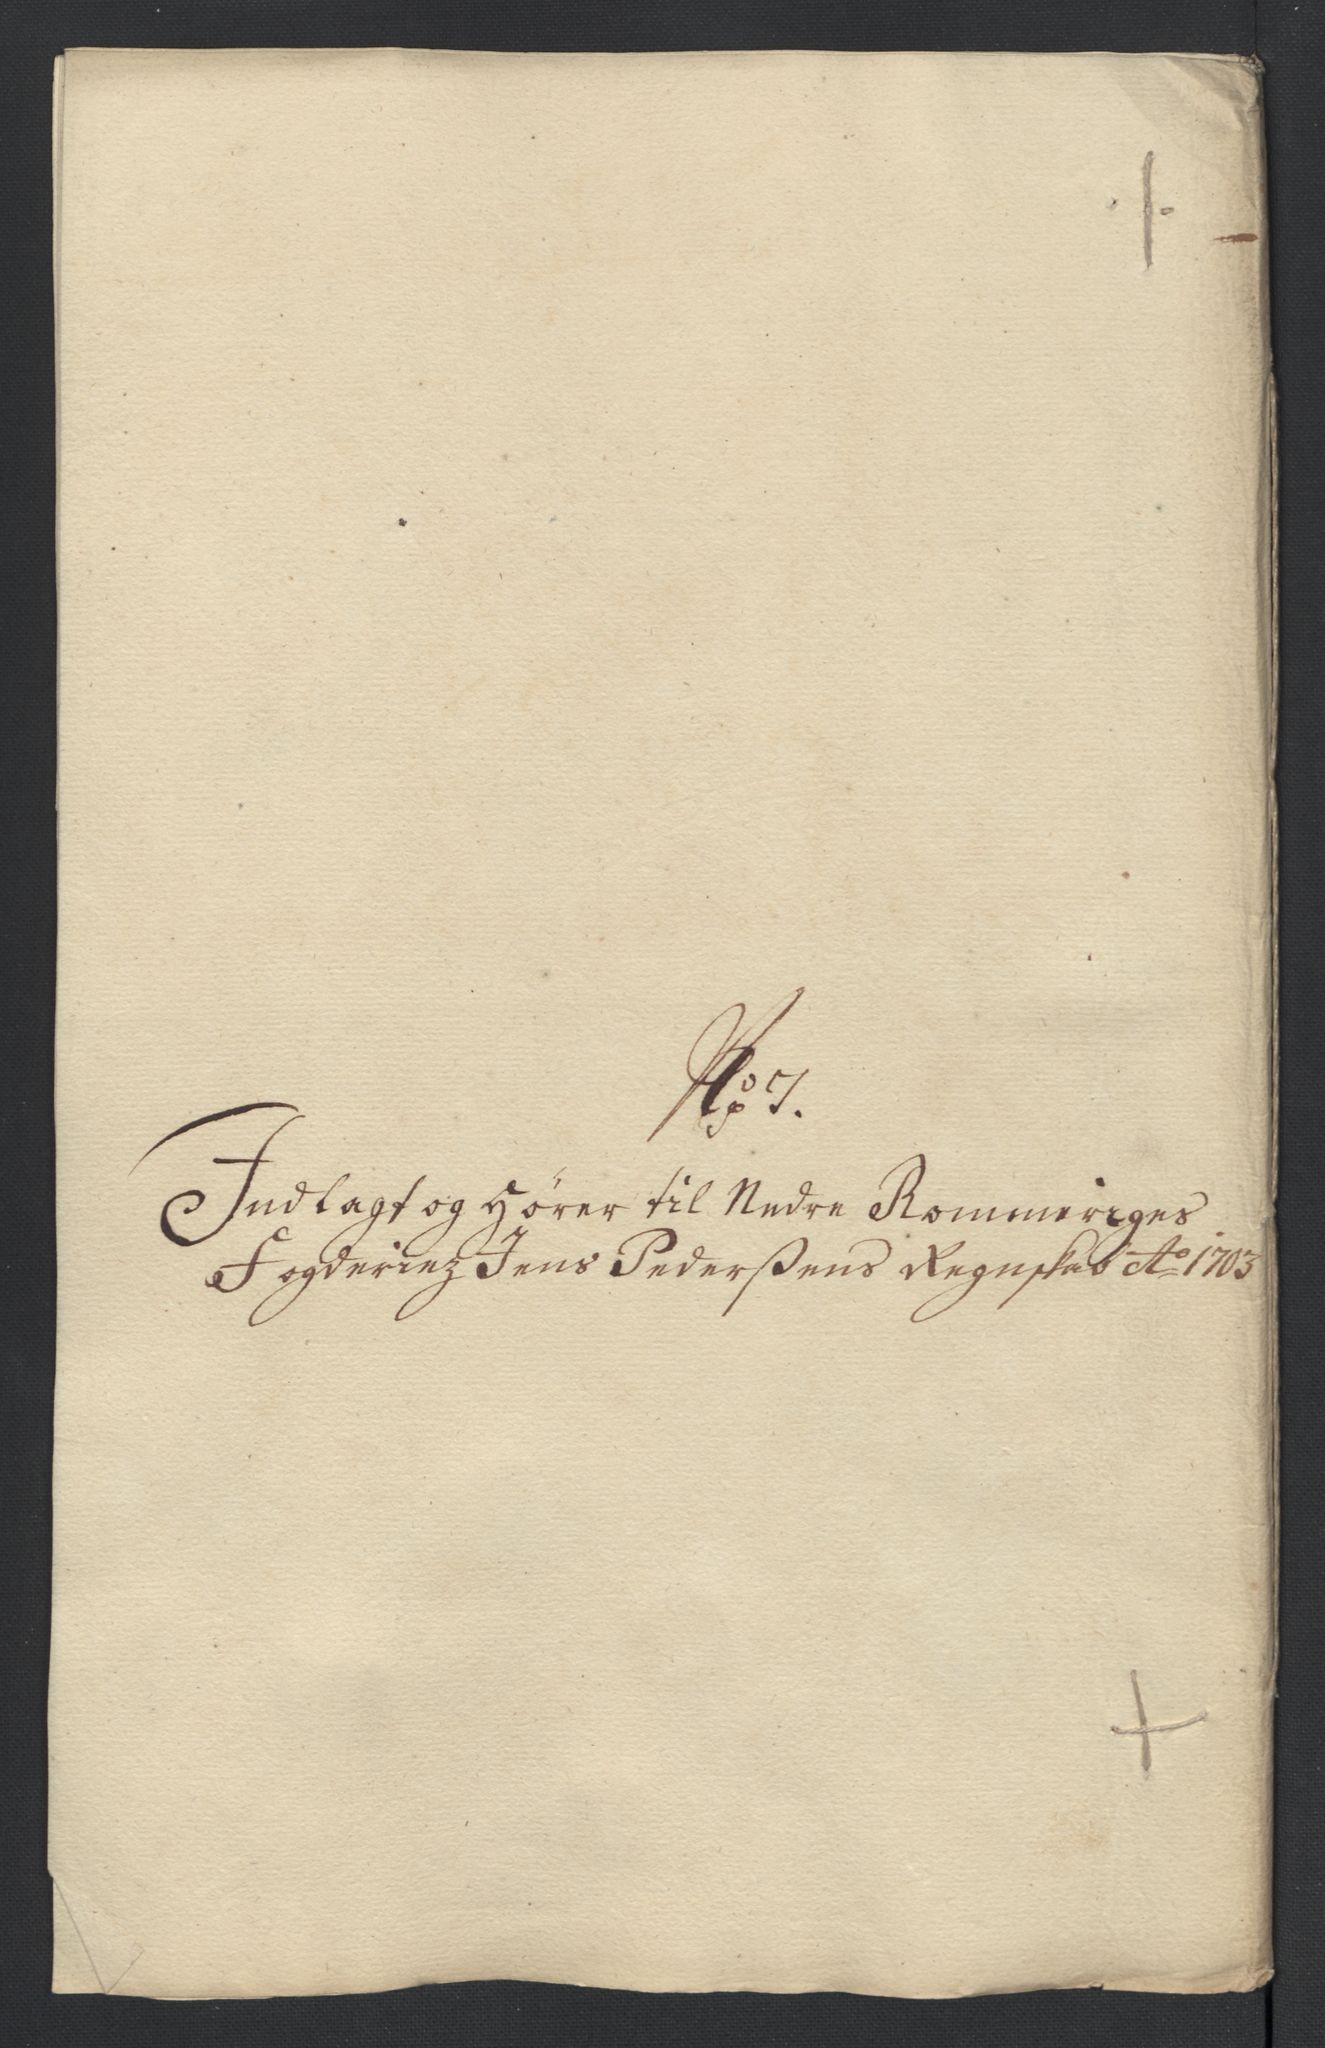 No 7.
Indlagt og Hører til Nedre Rommeriges
Fogderiez Jens Pederßens Regnskab Ao 1703